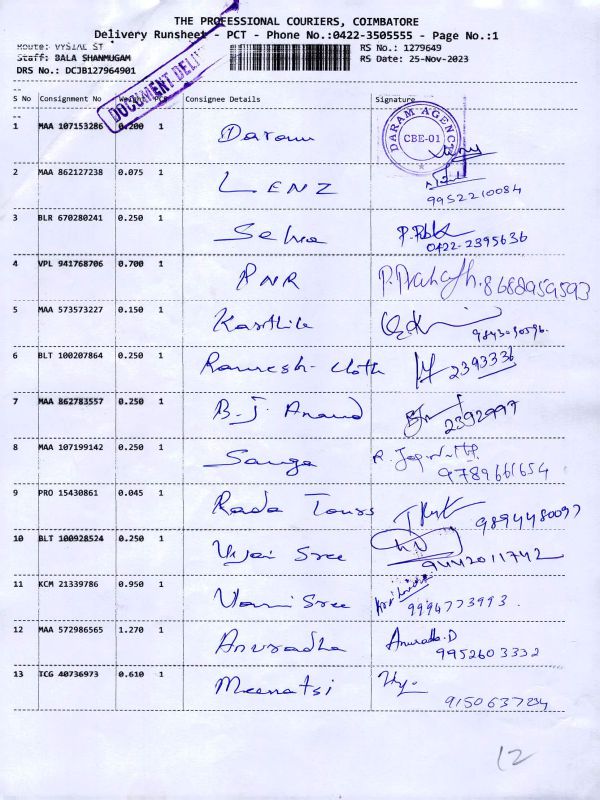 THE PROFESSIONAL COURIERS, COIMBATORE
Delivery Runsheet - PCT - Phone No.:0422-3505555 - Page No.:1
Route: VYSIAL ST RS No.: 1279649
Staff: BALA SHANMUGAM RS Date: 25-Nov-2023
DRS No.: DCJB127964901
DOCUMENT DELI
S No Consignment No Weight PCB Consignee Details Signature
1 MAA 107153286 0.200 1 Daram
DARAM AGENC
CBE-01
2 MAA 862127238 0.075 1 LENZ
9952210084
3 BLR 670280241 0.250 1 Selva
0422-2395636
4 VPL 941768706 0.700 1 PNR P. Prakath. 8688959593
5 MAA 573573227 0.150 1 Karthik
6 BLT 100207864 0.250 1 Ramesh-Cloth 2393336
7 MAA 862783557 0.250 1 B.J. Anand 2392997
8 MAA 107199142 0.250 1 Sanga
9789661654
9 PRO 15430861 0.045 1 Rada Tours 9894480097
10 BLT 100928524 0.250 1 Vijai Sree
9442011742
11 KCM 21339786 0.950 1 Vani Sree
9994773993.
12 MAA 572986565 1.270 1 Anuradha Anuradha.D
9952603332
13 TCG 40736973 0.610 1 Meenatsi
9150637284
12